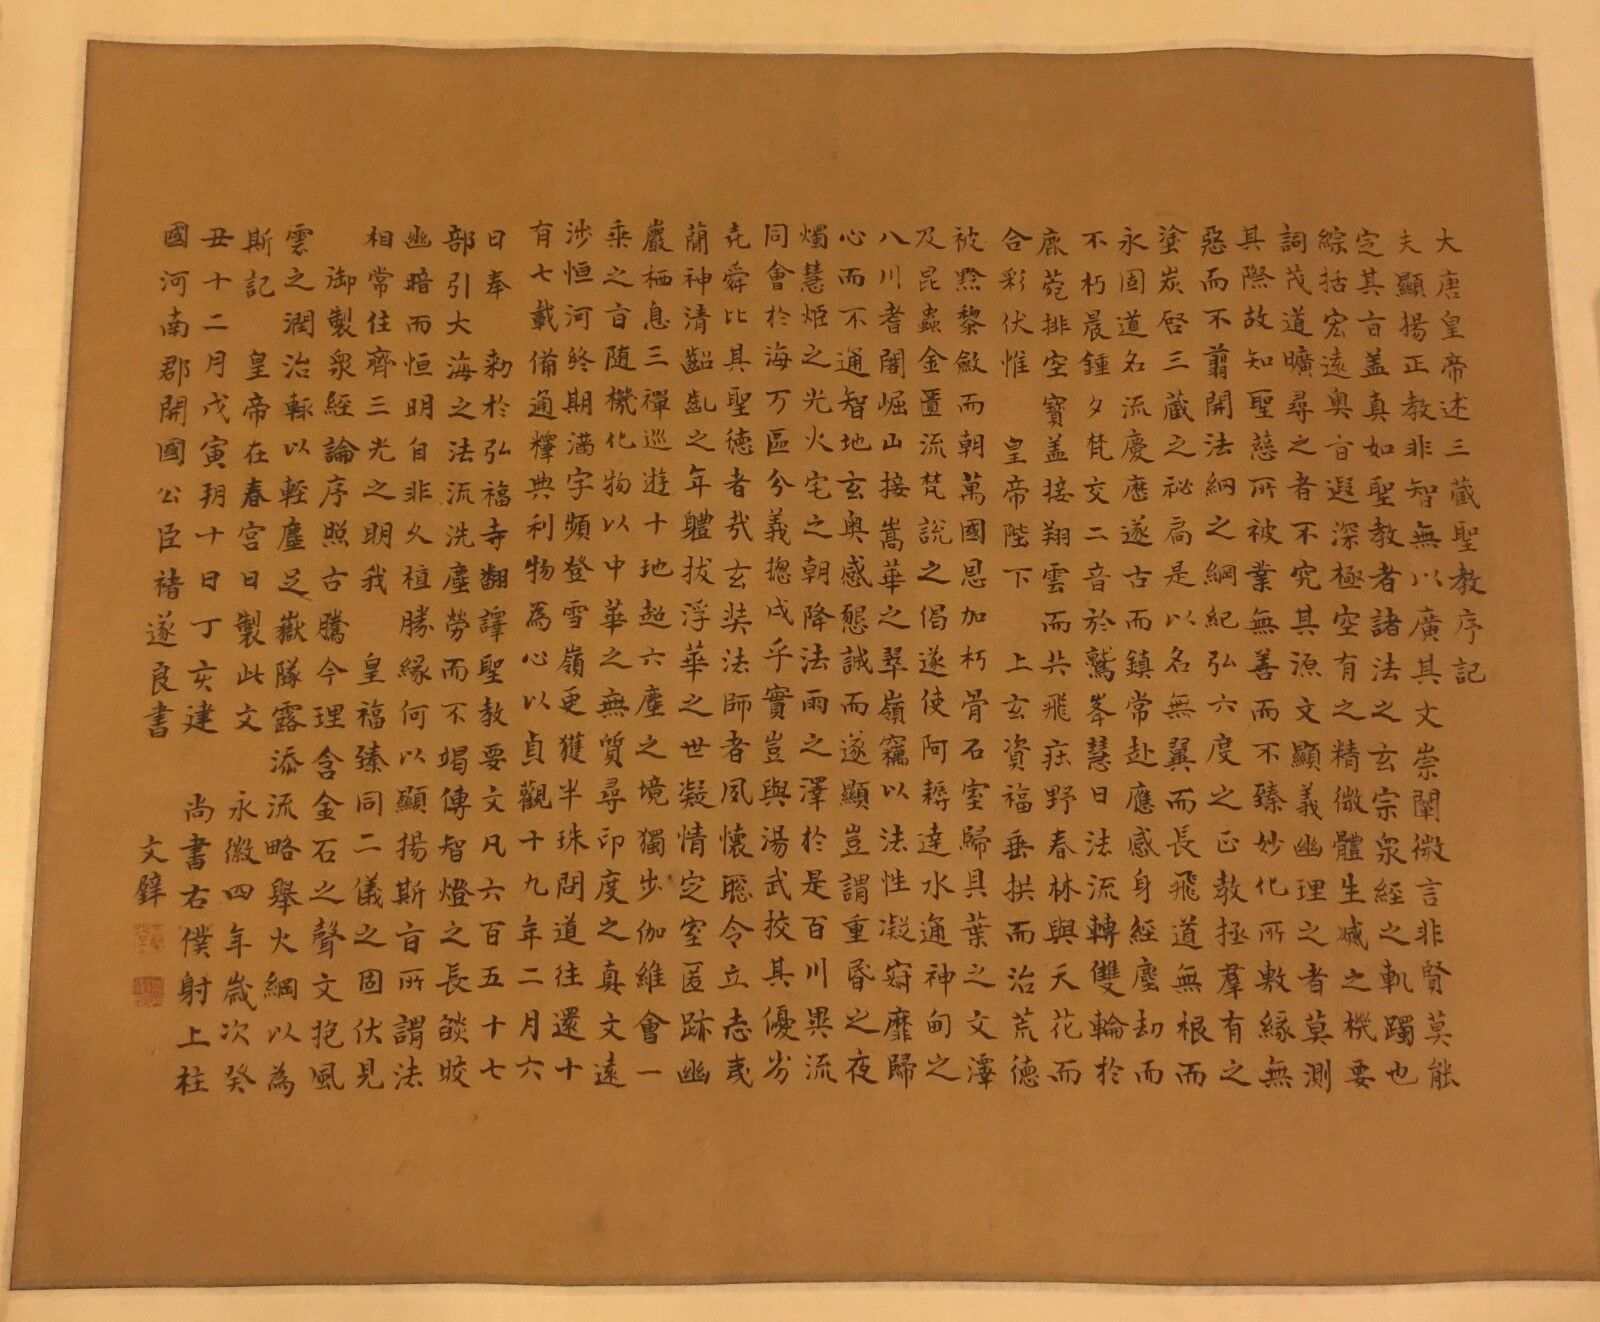 大唐皇帝述三藏聖教序記
夫顯揚正教非智無以廣其文崇闡微言非賢莫能
定其旨盖真如聖教者諸法之玄宗衆經之軌躅也
綜括宏遠奥旨遐深極空有之精微體生滅之機要
詞茂道曠尋之者不究其源文顯義幽理之者莫測
其際故知聖慈所被業無善而不臻妙化所敷緣無
惡而不翦開法網之綱紀弘六度之正教拯羣有之
塗炭啓三藏之祕扃是以名無翼而長飛道無根而
永固道名流慶歷遂古而鎮常赴應感身經塵劫而
不朽晨鍾夕梵交二音於鷲峯慧日法流轉雙輪於
鹿菀排空寶盖接翔雲而共飛莊野春林與天花而
合彩伏惟　皇帝陛下　上玄資福垂拱而治荒德
被黔黎斂而朝萬國恩加朽骨石室歸具葉之文澤
及昆蟲金匱流梵説之偈遂使阿耨達水通神甸之
八川耆闍崛山接嵩華之翠嶺竊以法性凝寂靡歸
心而不通智地玄奥感懇誠而遂顯豈謂重昏之夜
燭慧炬之光火宅之朝降法雨之澤於是百川異流
同會於海万區分義揔成乎實豈與湯武挍其優劣
堯舜比其聖德者哉玄奘法師者夙懷聡令立志夷
蕳神清齠齓之年體拔浮華之世凝情定室匿跡幽
巖栖息三禪巡遊十地超六塵之境獨步伽維會一
乘之旨随機化物以中華之無質尋印度之真文遠
涉恒河終期滿字頻登雪嶺更獲半珠問道往還十
有七載備通釋典利物為心以貞觀十九年二月六
日奉　勅於弘福寺翻譯聖教要文凡六百五十七
部引大海之法流洗塵勞而不竭傳智燈之長燄皎
幽暗而恒明自非久植勝緣何以顯揚斯旨所謂法
相常住齊三光之明我　皇福臻同二儀之固伏見
御製衆經論序照古騰今理含金石之聲文抱風
雲之潤治輒以輕塵足嶽墜露添流略舉火綱以為
斯記　皇帝在春宮日製此文　永徽四年歲次癸
丑十二月戊寅朔十日丁亥建　尚書右僕射上柱
國河南郡開國公臣褚遂良書　文璧